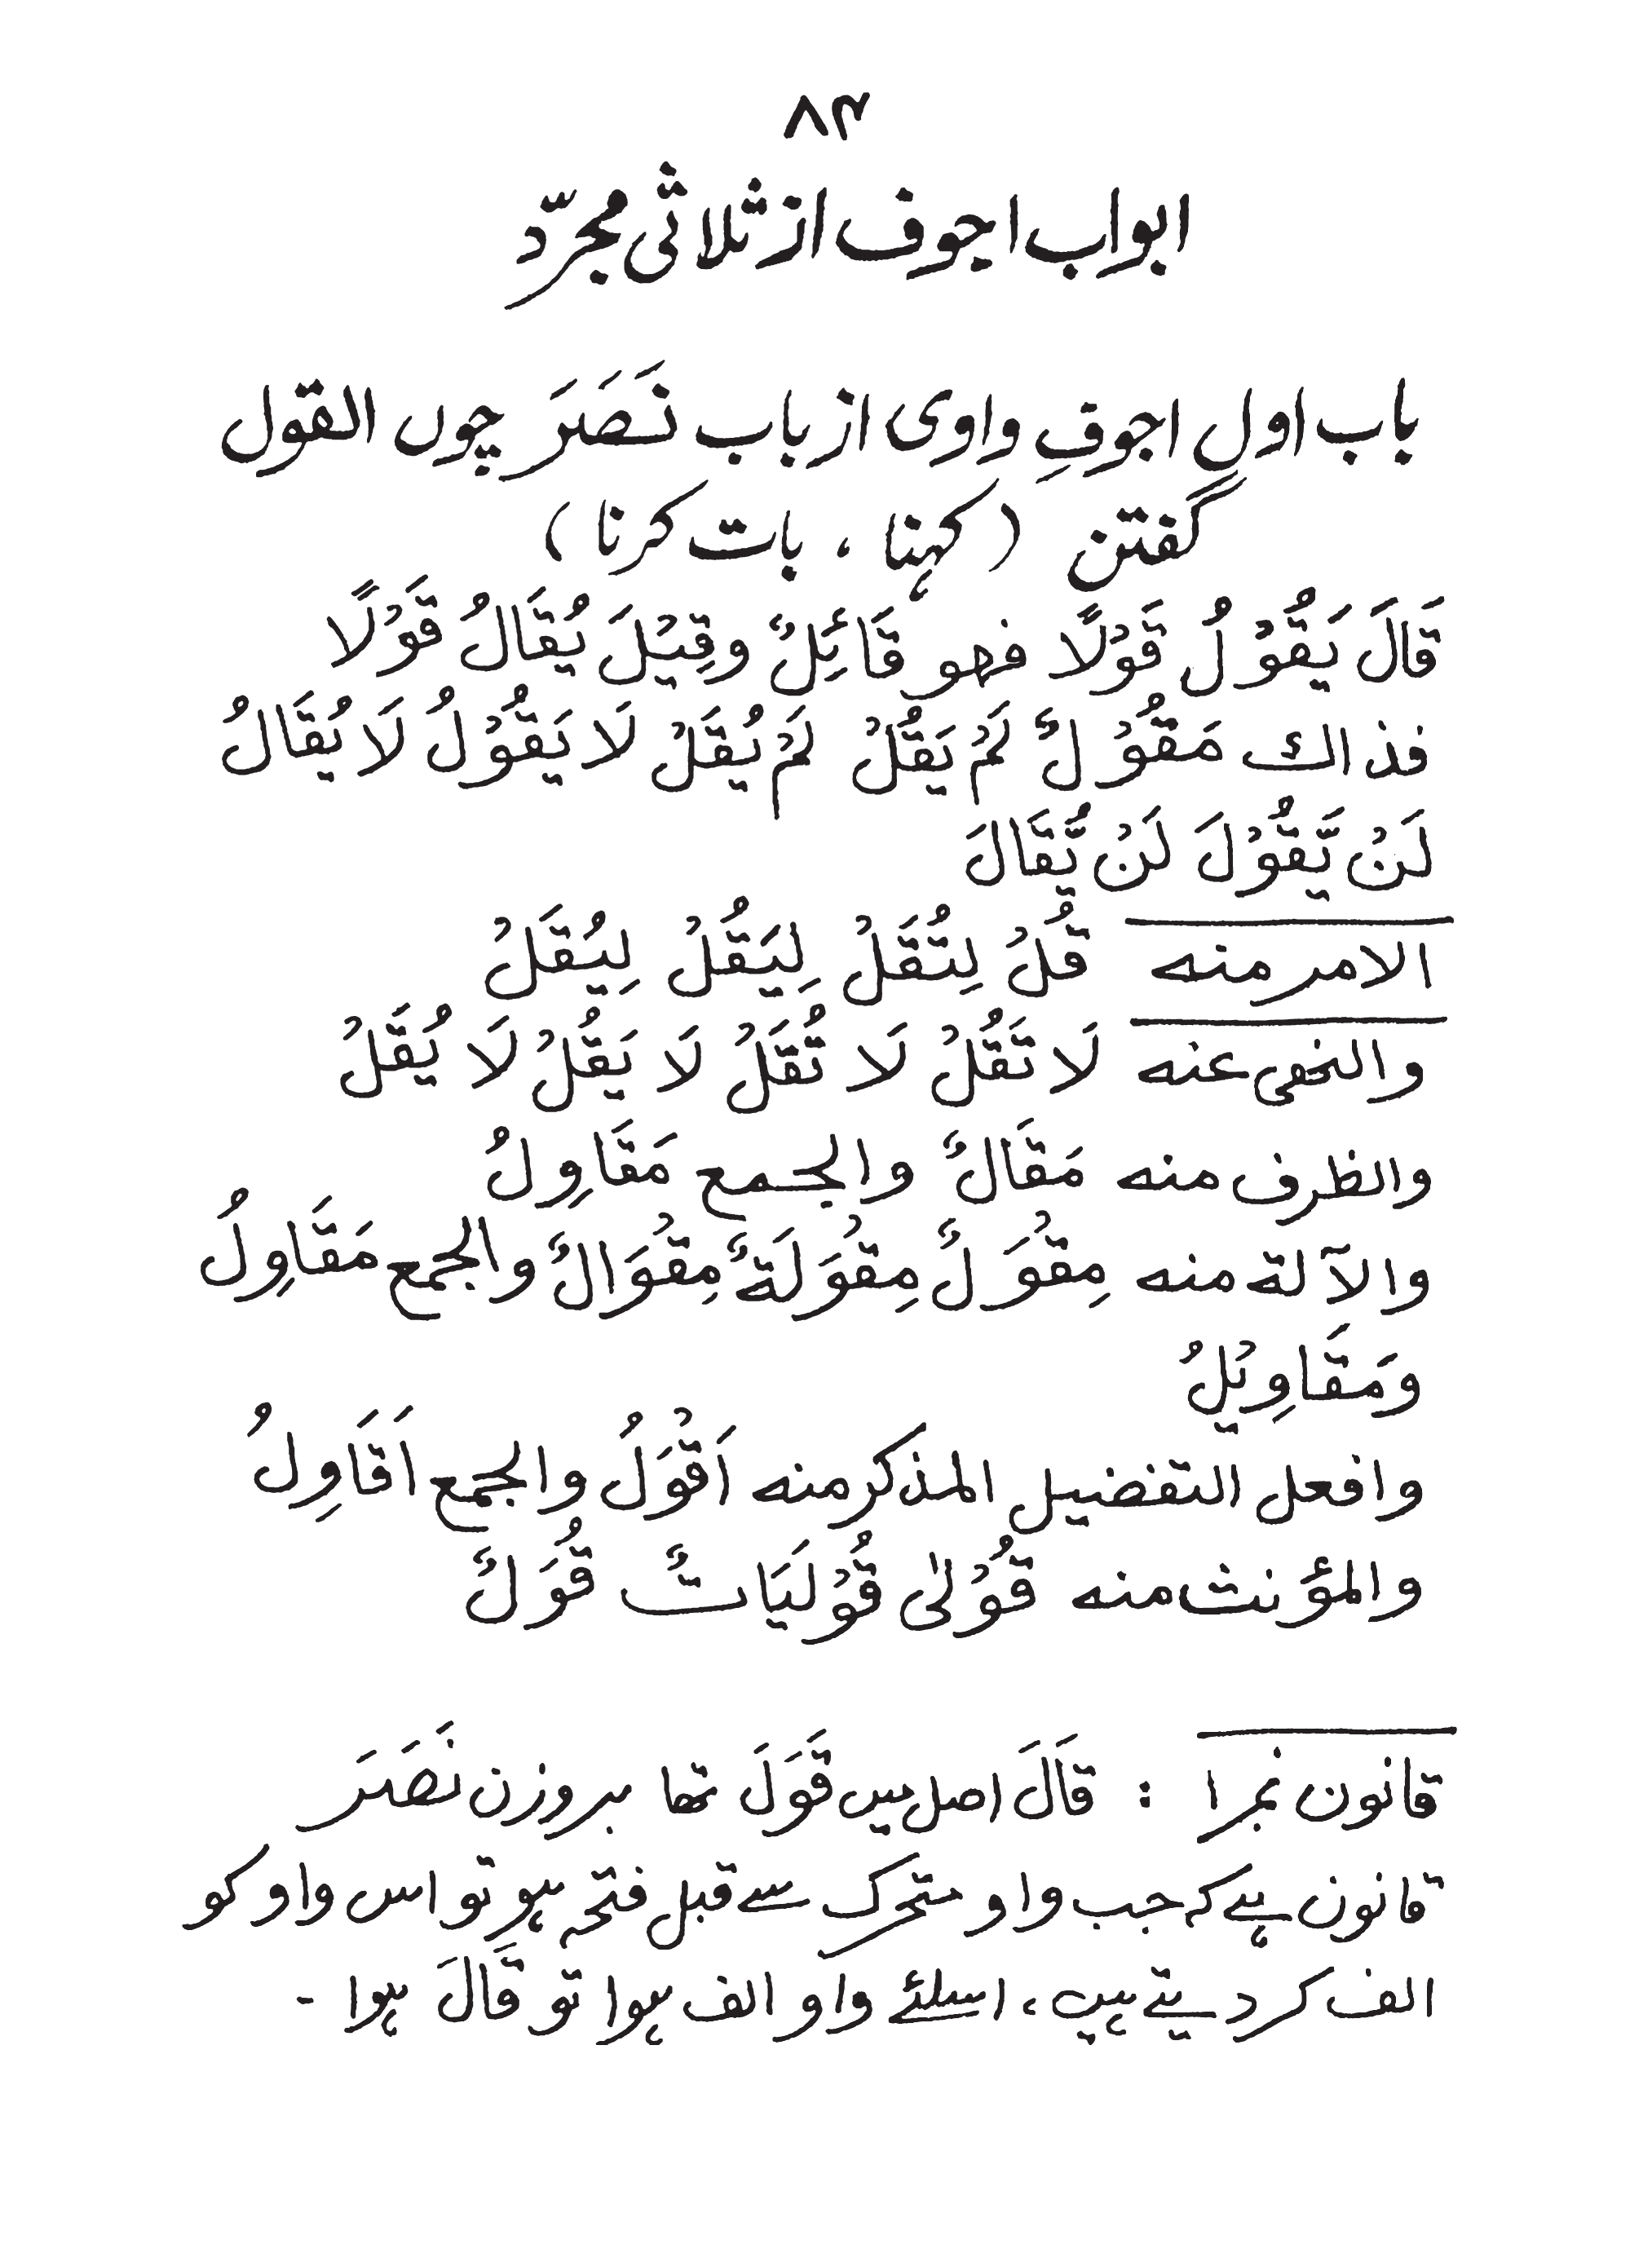 ۸۳
ابواب اجوف از ثلاثی مجرّد
باب اول اجوفِ واوی از باب نَصَرَ چوں القول
گفتن (کہنا ، بات کرنا)
قَالَ يَقُوْلُ قَوْلًا فهو قَائِلٌ وقِيْلَ يُقَالُ قَوْلًا
فذاك مَقُوْلٌ لَمْ يَقُلْ لَمْ يُقَلْ لَا يَقُوْلُ لَا يُقَالُ
لَنْ يَّقُوْلَ لَنْ يُّقَالَ
الامر منه قُلْ لِتُقَلْ لِيَقُلْ لِيُقَلْ
والنهی عنه لَا تَقُلْ لَا تُقَلْ لَا يَقُلْ لَا يُقَلْ
والظرف منه مَقَالٌ والجمع مَقَاوِلُ
والآلة منه مِقْوَلٌ مِقْوَلَةٌ مِقْوَالٌ والجمع مَقَاوِلُ
ومَقَاوِيْلُ
وافعل التفضيل المذكر منه اَقْوَلُ والجمع اَقَاوِلُ
والمؤنث منه قُوْلٰى قُوْلَيَاتٌ قُوَلٌ
قانون نمبر ۱ : قَالَ اصل میں قَوَلَ تھا بروزن نَصَرَ
قانون ہے کہ جب واو متحرک سے قبل فتحہ ہو تو اس واو کو
الف کر دیتے ہیں، اسلئے واو الف ہوا تو قَالَ ہوا ۔